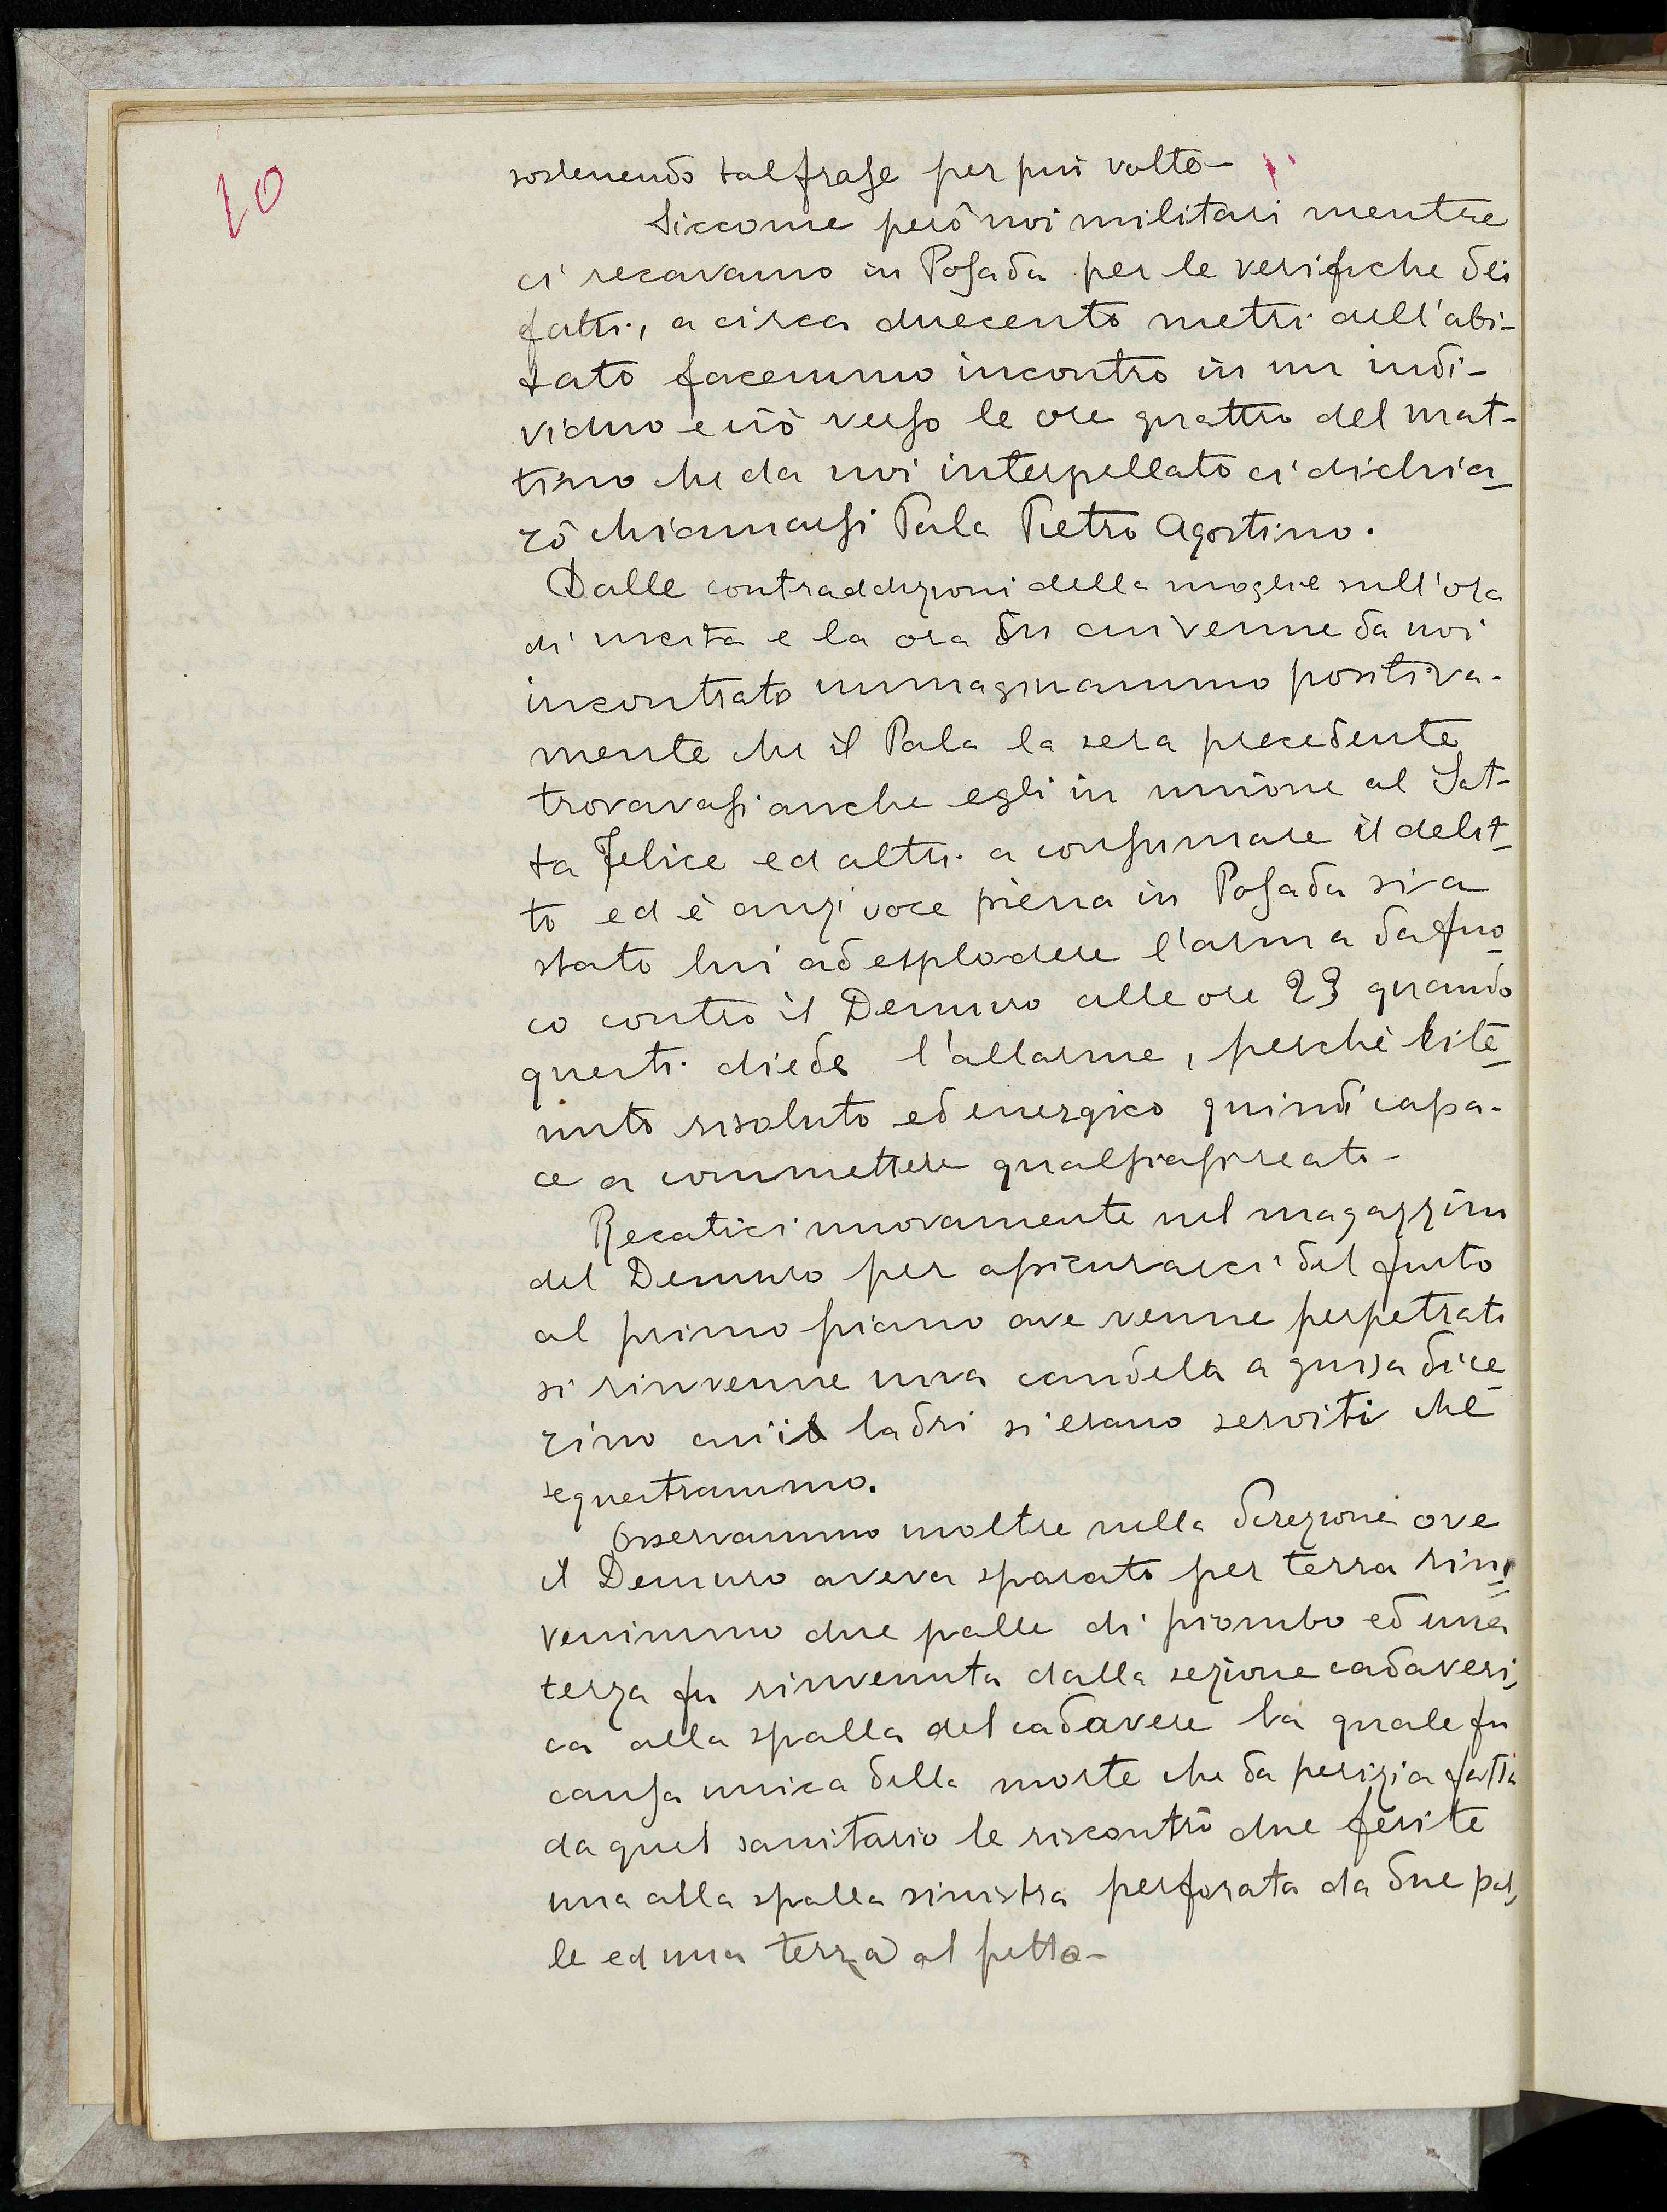 10
sostenendo tal frase per più volte-
Siccome però noi militari mentre
ci recavamo in Posada per le verifiche dei
fatti, a circa duecento metri dell'abi-
tato facemmo incontro in un indi-
viduo e ciò verso le ore quattro del mat-
tino che da noi interpellato ci dichia-
rò chiamarsi Pala Pietro Agostino.
Dalle contraddizioni della moglie sull'ora
di uscita e la ora in cui venne da noi
incontrato immaginammo positiva-
mente che il Pala la sera precedente
trovavasi anche egli in unione al Sat-
ta Felice ed altri a consumare il delit-
to ed è anzi voce piena in Posada sia
stato lui ad esplodere l'arma da fuo-
co contro il Demuro alle ore 23 quando
questi diede l'allarme, perchè rite-
nuto risoluto ed energico quindi capa-
ce a commettere qualsiasi reato-
Recatici nuovamente nel magazzino
del Demuro per assicurarci del furto
al primo piano ove venne perpetrato
si rinvenne una candela a guisa di ce-
rino cui i ladri si erano serviti che
sequestrammo.
Osservammo inoltre nella direzione ove
il Demuro aveva sparato per terra rin-
venimmo due palle di piombo ed una
terza fu rinvenuta dalla sezione cadaveri-
ca alla spalla del cadavere la quale fu
causa unica della morte che da perizia fatta
da quel sanitario le riscontrò due ferite
una alla spalla sinistra perforata da due pal-
le ed una terza al petto-